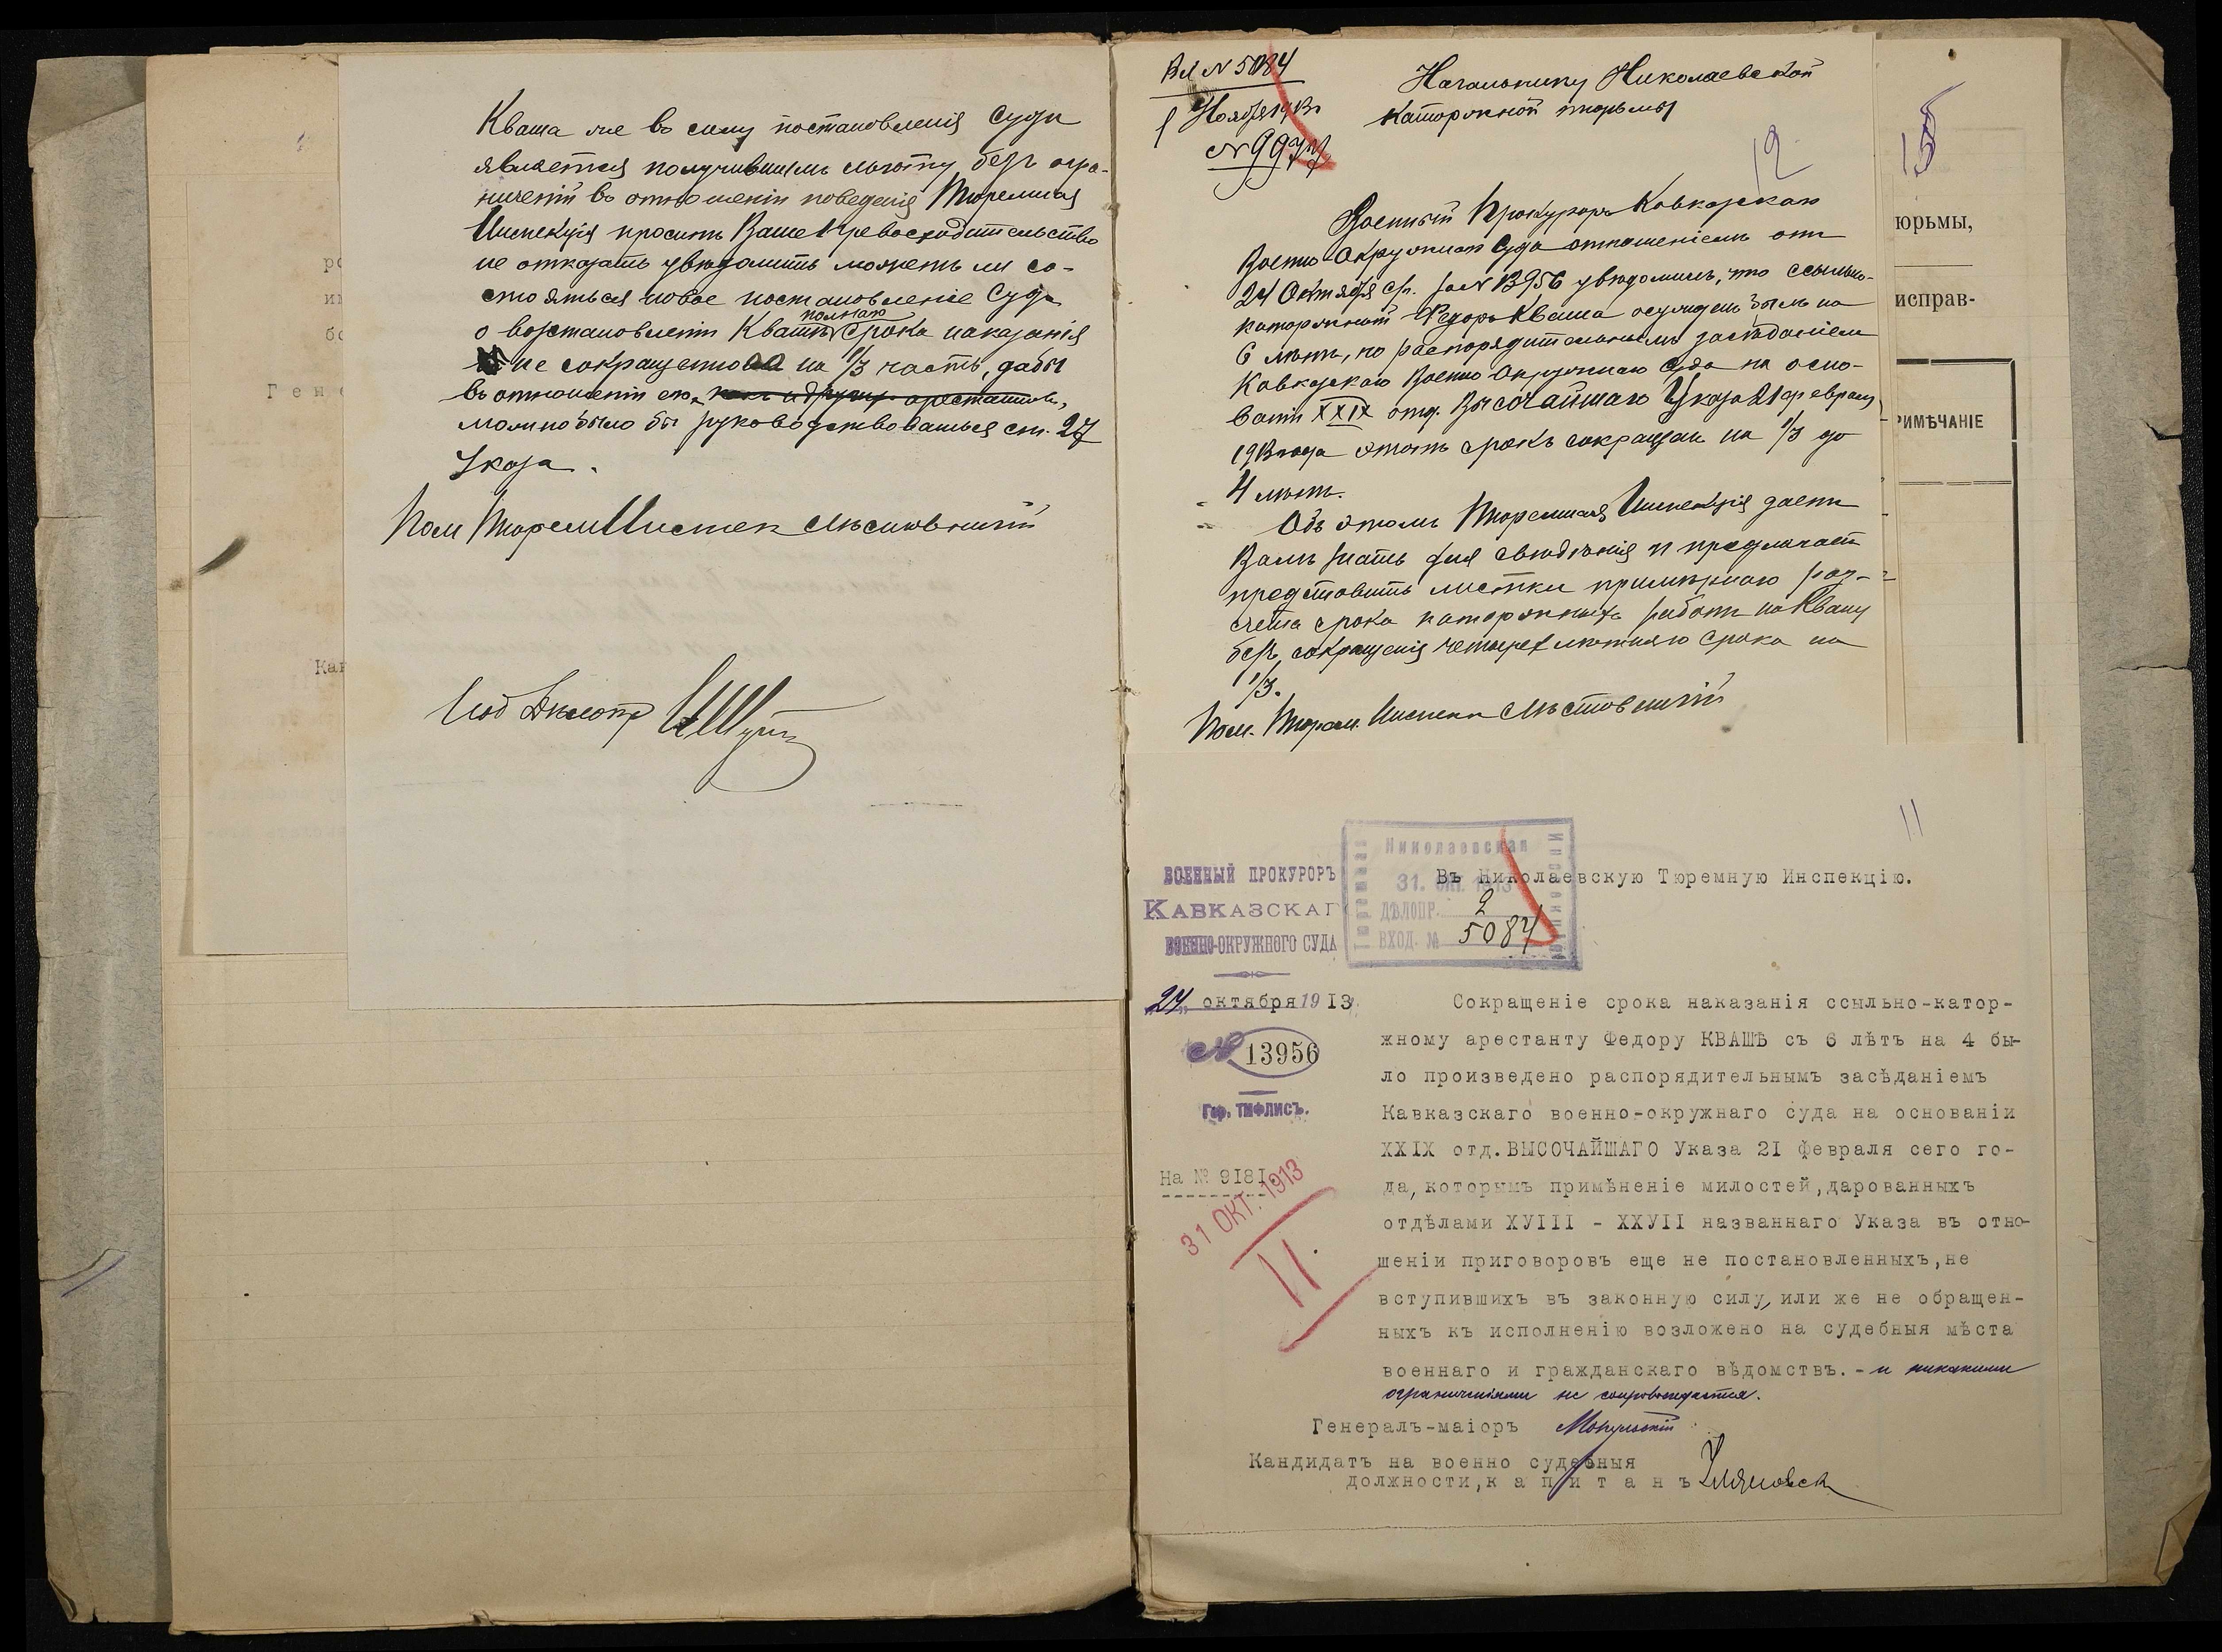 Кваша же въ силу постановленія Суда
является получившимъ льготу безъ огра-
ниченій въ отношеніи поведенія Тюремная
Инспекція проситъ Ваше Превосходительство
не отказать увѣдомить можетъ ли со-
стояться новое постановленіе Суда
полнаго
о возстановленіи Квашѣ срока наказанія
не сокращеннаго на 1/3 часть, дабы
въ отношеніи его, какъ и другихъ арестантовъ,
можно было бы руководствоваться ст. 27
Указа.
Пом Тюрем Инспек
Вх N 5084
1 Ноября 1913
N 9977
Начальнику Николаевской
каторжной тюрьмы
12
Военный Прокуроръ Кавказскаго
Военно Окружнаго Суда отношеніемъ отъ
24 Октября с/г. за N 13956 увѣдомилъ, что ссыльно-
каторжный Федоръ Кваша осужденъ былъ на
6 лѣтъ, но распорядительнымъ засѣданіемъ
Кавказскаго Военно Окружнаго Суда на осно-
ваніи XXIX отд. Высочайшаго Указа 21 февраля
1913 года этотъ срокъ сокращенъ на 1/3 до
4 лѣтъ.
Объ этомъ Тюремная Инспекція даетъ
Вамъ знать для свѣдѣнія и предлагаетъ
представить листки примѣрнаго раз-
счета срока каторжныхъ работъ на Квашу
безъ сокращенія четырехлѣтняго срока на
1/3.
Пом. Тюрем. Инспек
юрьмы,
исправ-
РИМѢЧАНІЕ
Ген
Кан
11
ВОЕННЫЙ ПРОКУРОРЪ
КАВКАЗСКАГ
ВОЕННО-ОКРУЖНОГО СУДА
Николаевская
Тюремная
Инспекція
31. ОКТ. 1913
ДѢЛОПР. 2
ВХОД. № 5084
Въ Николаевскую Тюремную Инспекцію.
„24„ октября 1913
№ 13956
Гор. ТИФЛИСЪ.
На № 9181
31 ОКТ. 1913
11.
Сокращеніе срока наказанія ссыльно-катор-
жному арестанту Федору КВАШѢ съ 6 лѣтъ на 4 бы-
ло произведено распорядительнымъ засѣданіемъ
Кавказскаго военно-окружнаго суда на основаніи
XXIX отд. ВЫСОЧАЙШАГО Указа 21 февраля сего го-
да, которымъ примѣненіе милостей, дарованныхъ
отдѣлами ХУІІІ - ХХУІІ названнаго Указа въ отно-
шеніи приговоровъ еще не постановленныхъ, не
вступившихъ въ законную силу, или же не обращен-
ныхъ къ исполненію возложено на судебныя мѣста
военнаго и гражданскаго вѣдомствъ. - и никакими
ограниченіями не сопровождается.
Генералъ-маіоръ
Кандидатъ на военно судебныя
должности, к а п и т а н ъ